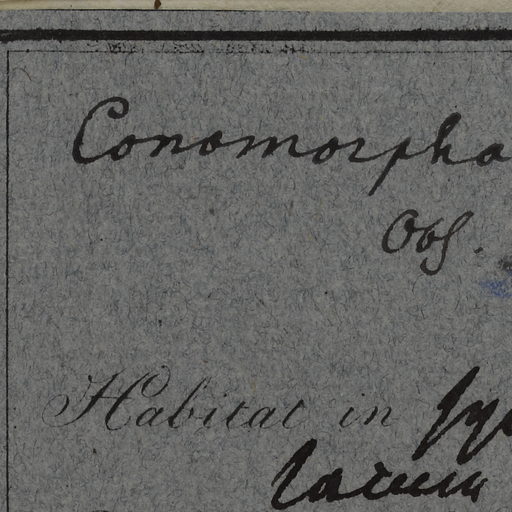 Conomorpha
Obs.
Habitat in